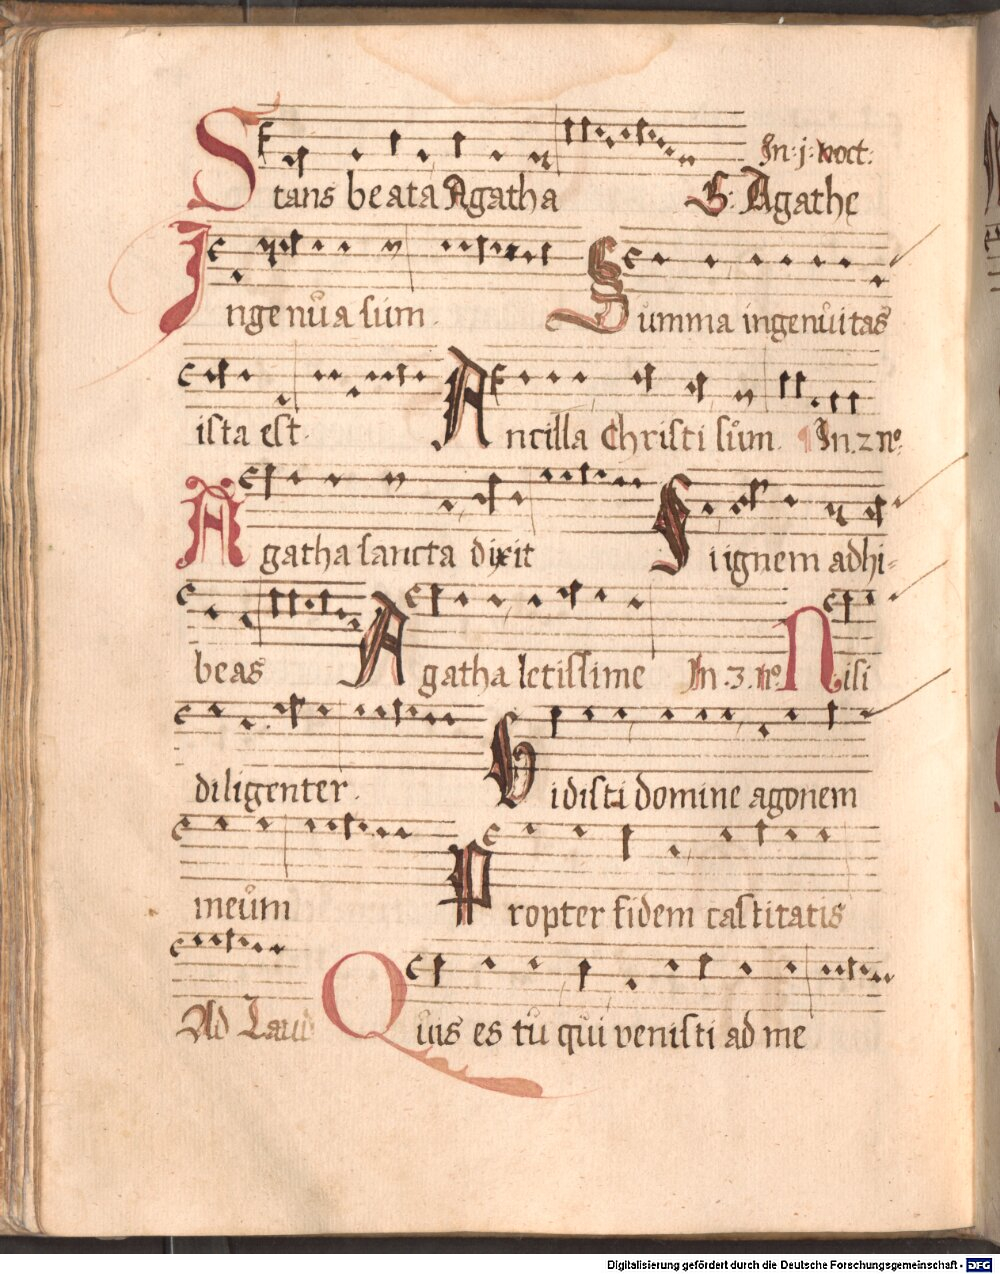 In: j: noct:
Stans beata Agatha S: Agathe
Ingenůa sům. Summa ingenůitas
ista est. Ancilla Christi sům. In. 2 no.
Agatha sancta dixit Si ignem adhi=
beas Agatha letissime In .3. no. Nisi
diligenter. Vidisti domine agonem
meům Propter fidem castitatis
Ad Laud Qůis es tů qůi venisti ad me
Digitalisierung gefördert durch die Deutsche Forschungsgemeinschaft - DFG